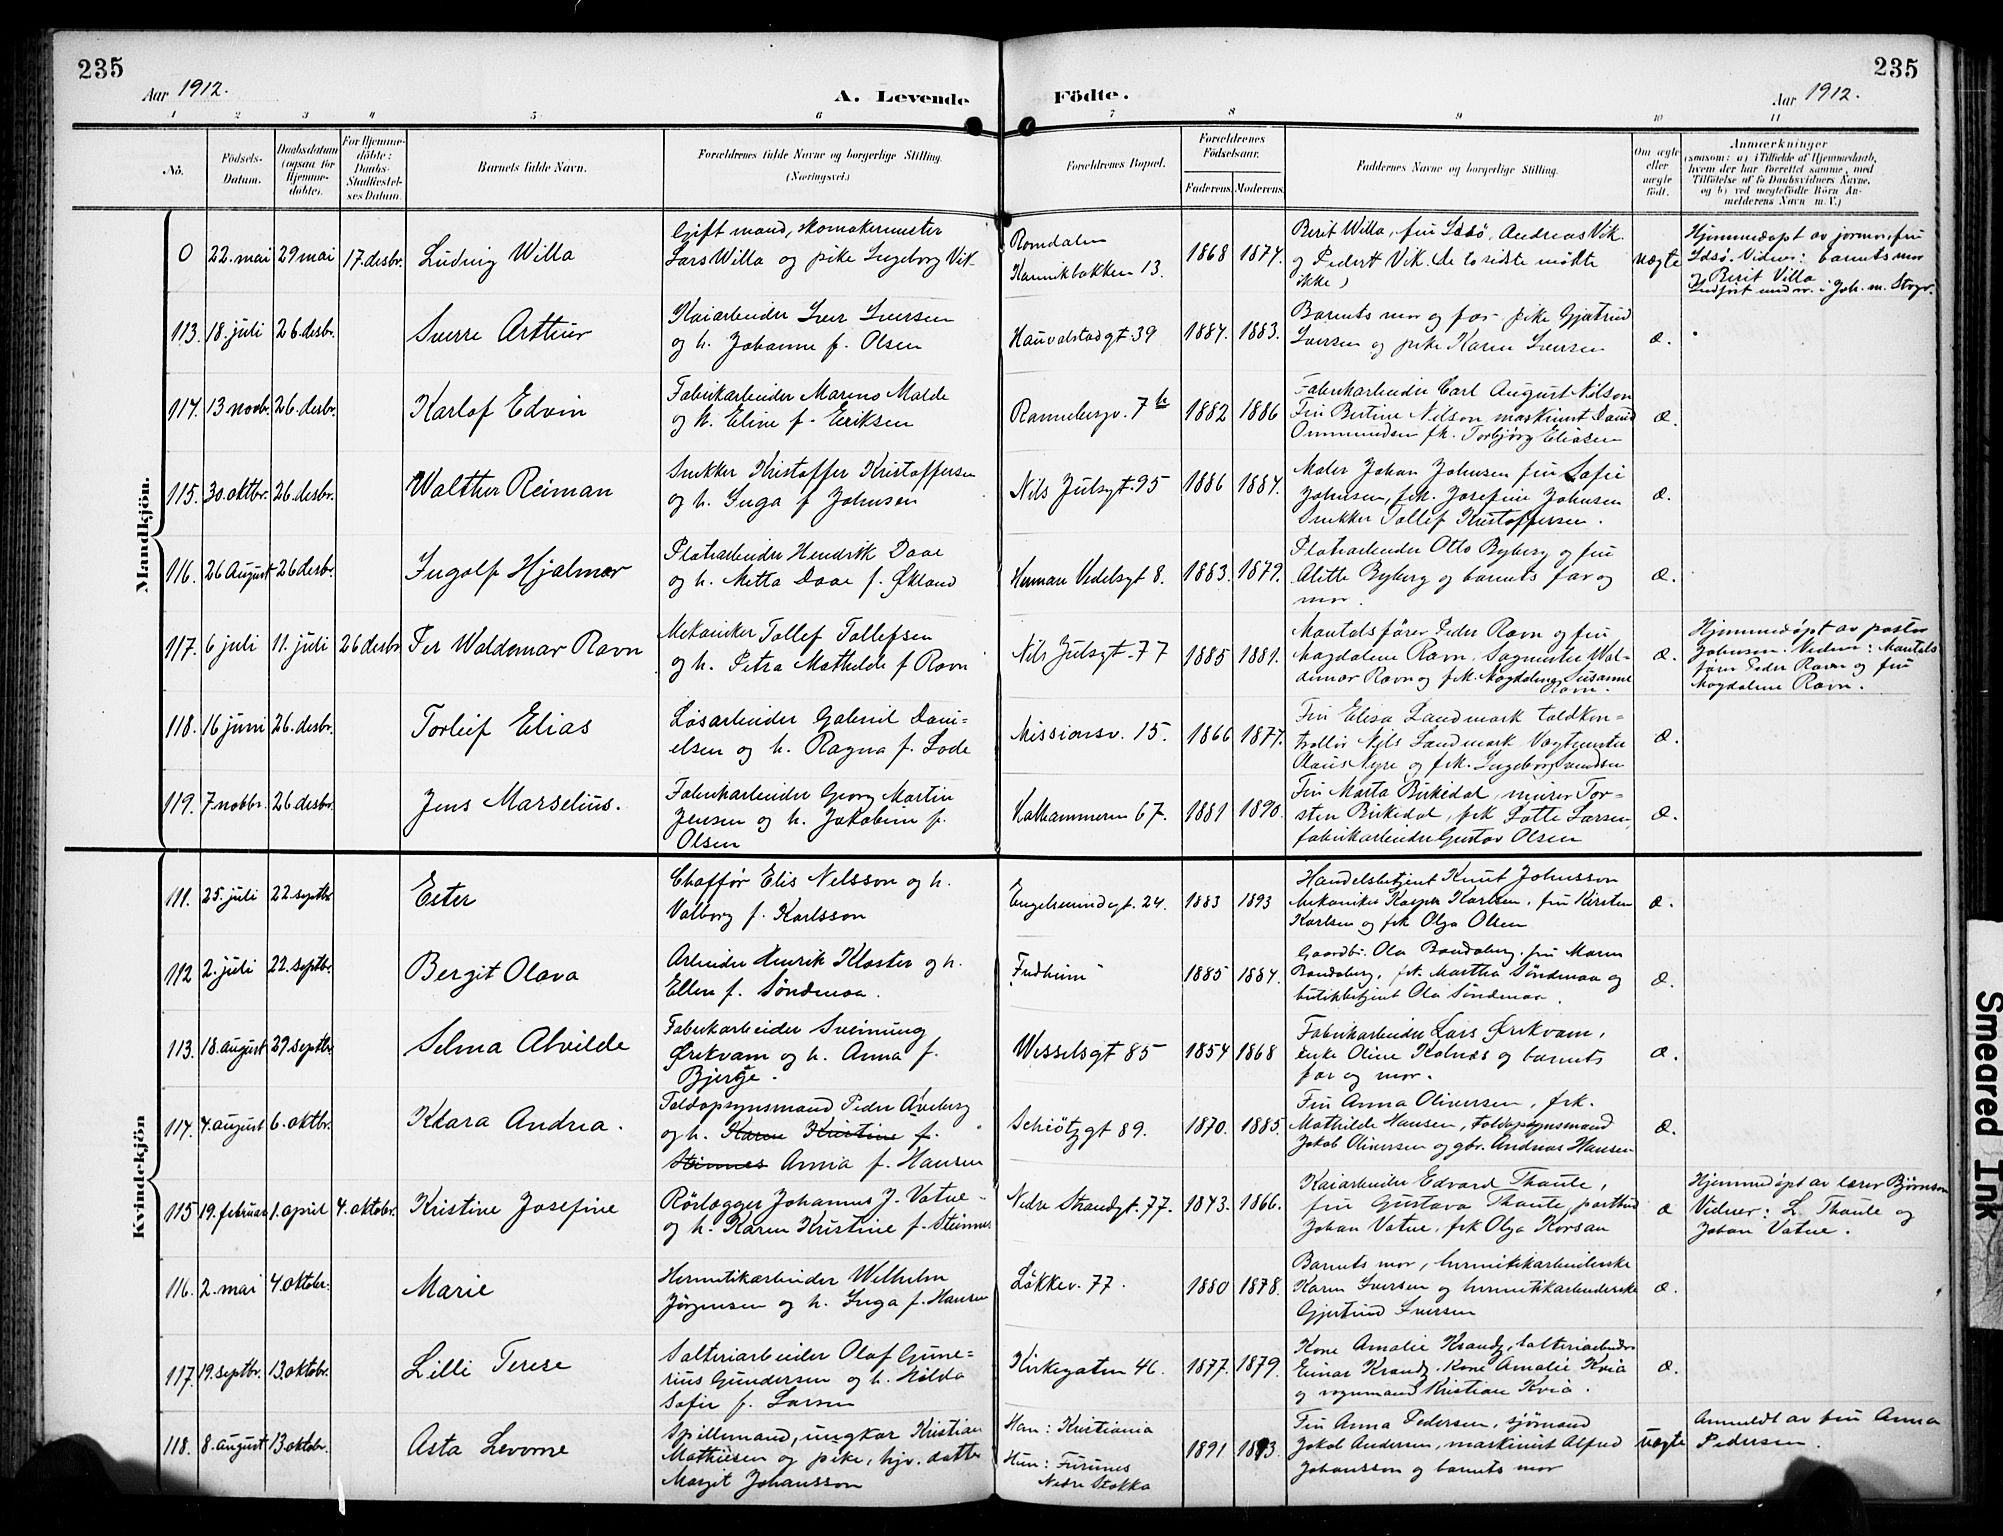 235
Aar 1912.
A. Levende
Födte.
Aar 1912.
235
1 2 3 4 5 6 7 8 9 10 11
No.
Födsels-Datum.
Daabsdatum (ogsaa for Hjemme-døbte).
For Hjemme-døbte: Daabs-Stadfæstel-ses Datum.
Barnets fulde Navn.
Forældrenes fulde Navne og borgerlige Stilling. (Næringsvei.)
Forældrenes Bopæl.
Forældrenes Födselsaar.
Faderens. Moderens.
Faddernes Navne og borgerlige Stilling.
Om ægte eller uægte födt.
Anmærkninger
(saasom: a) i Tilfælde af Hjemmedaab,
hvem der har forrettet samme, med
Tilföielse af to Daabsvidners Navne,
og b) ved uægtefödte Börn An-
melderens Navn m. V.)
Mandkjön.
0 22. mai 29 mai 17. desbr. Ludvig Willa
Gift mand, skomakermester
Lars Willa og pike Ingeborg Vik
Romdalen
Kannikbakken 13.
1868 1874.
Berit Willa, fru Idsö, Andreas Vik
og Peder Vik. (de to sidste mötte
ikke)
uægte
Hjemmedöpt av jormor, fru
Idsö. Vidner: barnets mor
og Berit Villa
Indfört under i Joh. m.
113. 18. juli 26. desbr. Sverre Arthur
Kaiarbeider Iver Iversen
og h. Johanne f. Olsen
Hauvalstadgt. 39
1884. 1883.
Barnets mor og far pike Gjatrud
Iversen og pike Karen Iversen
æ.
114. 13 novbr. 26. desbr. Karlof Edvin
Fabrikarbeider Marius Malde
og h. Eline f. Eriksen
Rannebergv. 7b
1882 1886
Fabrikarbeider Carl August Nilson
Fru Bertine Nilson, maskinist David
Ommundsen frk. Torbjörg Eliasen
æ.
115. 30. oktbr. 26. desbr. Walther Reiman
Snekker Kristoffer Kristoffersen
og h. Inga f Johnsen
Nils Julsgt. 95
1886 1884.
Maler Johan Johnsen fru Sofie
Johnsen, frk. Josefine Johnsen
Snekker Tollef Kristoffersen.
æ.
116. 26 August 26 desbr. Ingolf Hjalmar
Platearbeider Hendrik Daae
og h. Metta Daae f. Økland
Herman Vedelsgt 8.
1883. 1879.
Platearbeider Otto Byberg og fru
Alette Byberg og barnets far og
mor.
æ.
117. 6 juli 11. juli 26 desbr Per Waldemar Ravn
Mekaniker Tollef Tollefsen
og h. Petra Mathilde f Ravn
Nils Julsgt. 77
1885 1881.
Mantalsförer Peder Ravn og fru
Magdalene Ravn. Sagmester Wal-
dimar Ravn og frk. Magdalene Susanne
Ravn.
æ.
Hjemmedöpt av pastor
Johnsen. Vidner: Mantals
förer Peder Ravn og fru
Magdalene Ravn.
118. 16 juni 26. desbr. Torleif Elias
Løsarbeider Gabriel Dani-
elsen og h. Ragna f. Lode
Missionsv. 15.
1866 1877.
Fru Elisa Landmark toldkon-
trollör Nils Landmark Vægtmester
Claus Nyre og frk. Ingeborg
æ.
119. 7 novbr. 26 desbr. Jens Marselius.
Fabrikarbeider Georg Martin
Jensen og h. Jakobine f.
Olsen
Kalhammeren 67.
1881 1890.
Fru Marta Birkedal, murer Tor-
sten Birkedal, frk Lotte Larsen,
fabrikarbeider Gustav Olsen
æ.
Kvindekjön
111. 25. juli 22. septbr. Ester
Chafför Elis Nelsson og h.
Valborg f. Karlsson
Engelsmindegt. 24.
1883 1893
Handelsbetjent Knut Johnsson
Mekaniker Kasper Karlsen, fru Kirsten
Karlsen og frk Olga Olsen
æ.
112 2. juli 22. septbr. Bergit Olava
Arbeider Henrik Kloster og h.
Ellen f. Söndenaa.
Fredheim
1885 1884.
Gaardbr. Ola Bandaberg. fru Maren
Bandaberg, frk. Martha Söndenaa og
butikbetjent Ola Söndenaa.
æ.
113. 18. august 29. septbr. Selma Alvilde
Fabrikarbeider Sveinung
Ørekvam og h. Anna f.
Bjerge.
Wesselsgt 85
1854 1868
Fabrikarbeider Lars Ørekvam,
enke Oline Kolnes og barnets
far og mor.
æ.
114. 4. august 6. oktbr. Klara Andrea.
Toldopsynsmand Peder Aveberg
og h. Karen Kristine f.
Stinnes Anna f. Hansen
Schiötzgt 89.
1870. 1885.
Fru Anna Oliversen, frk.
Mathilde Hansen, Toldopsynsmand
Jakob Oliversen og gbr. Andreas Hansen
æ.
115 19. februar 1. april 4. oktobr. Kristine Josefine
Rörlægger Johannes J. Vatne
og h. Karen Kristine f. Steinnes
Nedre Strandgt. 77.
1843. 1866.
Kaiarbeider Edvard Thaule,
fru Gustava Thaule, postbud
Johan Vatne, frk Olga Korsan
æ
Hjemmedöpt av lærer Björnson
Vidner: L. Thaule og
Johan Vatne.
116. 2. mai 4. oktobr. Marie
Hermetikarbeider Wilhelm
Jørgensen og h. Inga f. Hansen
Løkkev. 77.
1880 1878.
Barnets mor, hermetikarbeiderske
Karen Iversen og hermetikarbeiderske
Gjertrud Iversen
æ.
117. 19. septbr. 13. oktobr. Lilli Terese
Salteriarbeider Olaf Gune-
rius Gundersen og h. Hilda
Sofie f. Larsen
Kirkegaten 46.
1877. 1879.
Kone Amalie Krandz, salteriarbeider
Einar Krandz. Kone Amalie Kvia
og vognmand Kristian Kvia.
æ.
118. 8. august 13. oktobr. Asta Levorne
Spillemand, ungkar Kristian
Mathiesen og pike, hjv. datter
Margit Johansson
Han: Kristiania
Hun: Furunes
Nedre Stokka
1891 1893.
Fru Anna Pedersen, sjömand
Jakob Andersen, maskinist Alfred
Johansson og barnets mor
uægte
Anmeldt av fru Anna
Pedersen.
Smeared Ink